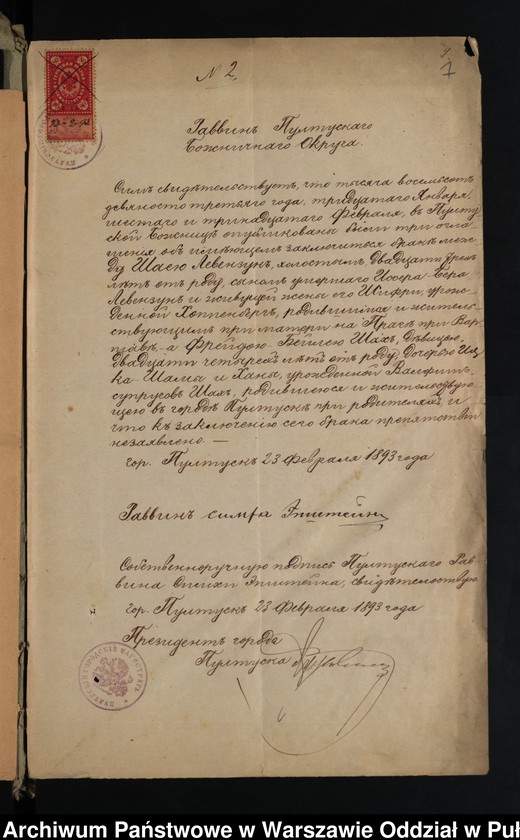 № 2
7
Раввинъ Пултускаго
Божничнаго Округа.
Симъ свидѣтельствуетъ, что тысяча восемьсотъ
девяносто третьяго года, тридцатаго Января,
шестаго и тринадцатаго Февраля, въ Пулту-
ской Божницѣ опубликованы были три огла-
шенія объ имѣющемъ заключиться бракѣ меж-
ду Шаею Левензунъ, холостымъ двадцати трехъ
лѣтъ отъ роду, сыномъ умершаго Иосфа-Бера
Левензунъ и живущей жены его Шифри, урож-
денной Хоппенбергъ, родившимся и житель-
ствующимъ при матери на Прагѣ при Вар-
шавѣ - а Фрейдою-Бейлею Шахъ, дѣвицею,
двадцати четырехъ лѣтъ отъ роду, дочерью Иц-
ка-Шамы и Ханы, урожденной Валфишъ,
супруговъ Шахъ, родившеюся и жительствую-
щею въ городѣ Пултускѣ при родителяхъ и
что къ заключенію сего брака препятствій
незаявлено. —
гор. Пултускъ 23 Февраля 1893 года
Раввинъ симха Эпштейнъ
Собственноручную подпись Пултускаго Рав-
вина Симхи Эпштейна, свидѣтельствую.
гор. Пултускъ 23 Февраля 1893 года
Президентъ города
Пултуска
Archiwum Państwowe w Warszawie Oddział w Puł